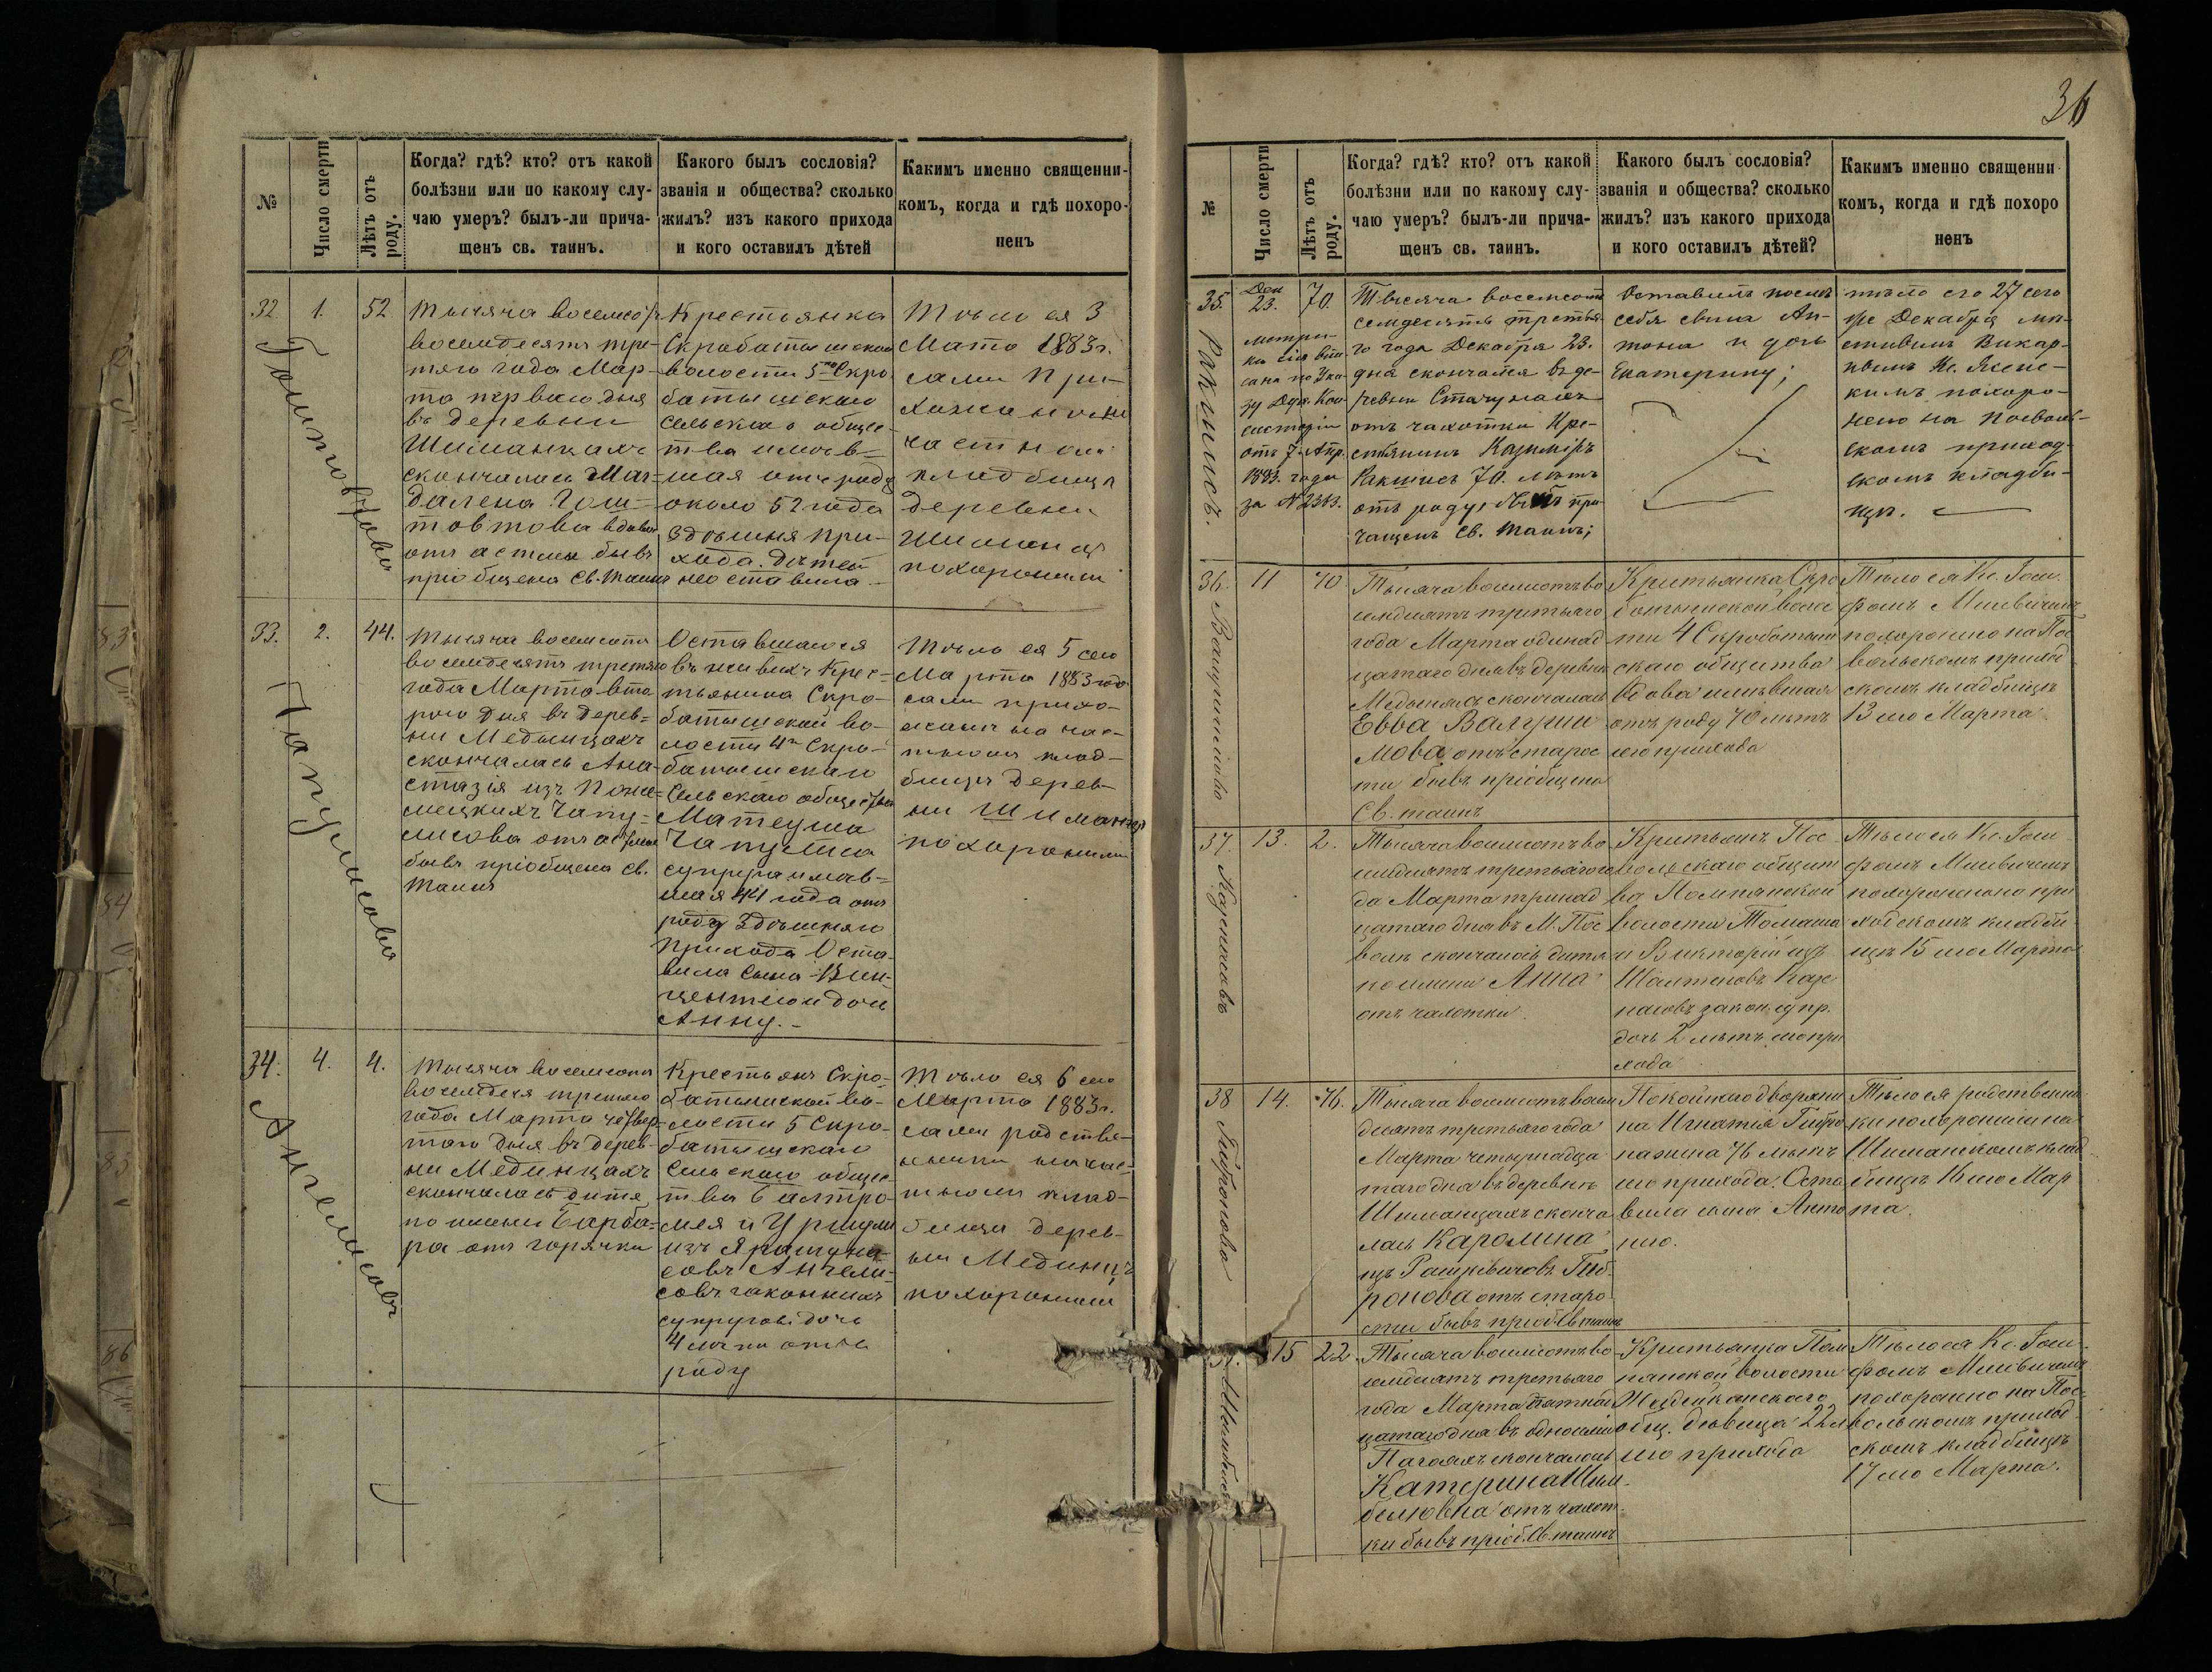 36
№
Число смерти
Лѣтъ отъ роду.
Когда? гдѣ? кто? отъ какой
болѣзни или по какому слу-
чаю умеръ? былъ-ли прича-
щенъ св. таинъ.
Какого былъ сословія?
званія и общества? сколько
жилъ? изъ какого прихода
и кого оставилъ дѣтей
Какимъ именно священни-
комъ, когда и гдѣ похоро-
ненъ
32
1.
52
Тысяча восемсотъ
восемдесятъ тре-
тяго года Мар-
та перваго дня
въ деревни
Шиманцахъ
скончалась Маг-
далена
вдова
отъ астмы бывъ
пріобщена Св. Таинъ
Крестьянка
Скробатышской
волости 5го Скро
батышскаго
сельскаго общес-
тва имѣв-
шая отъ роду
около 52 года
здѣшняя при-
хода. Дѣтей
неоставила
Тѣло ея 3
Марта 1883 г.
сами При-
хожане на
частном
кладбищѣ
деревни
Шиманц
похоронили
33.
2.
44.
Чапулисова
Тысяча восемсотъ
восемдесятъ третяго
года Марта вто
рого дня въ дерев-
ни Мединцахъ
скончалась Ана-
стазія изъ
Чапу-
лисова отъ астмы
бывъ пріобщена Св.
Таинъ
Оставшагося
въ живыхъ Крес-
тьянина Скро-
батышской во-
лости 4го Скро-
батышскаго
Сельскаго общества
Матеуша
Чапулиса
супруга имѣв-
шая 44 года отъ
роду здѣшняго
прихода Оста-
вила сына Вин-
центаго и дочь
Анну.
Тѣло ея 5 сего
Марта 1883 года
сами прихо-
жане на час-
тном клад-
бищѣ дерев-
ни Шиманц
похоронили
34.
4.
4.
Ангелисовъ
Тысяча восемсотъ
восемдеся третяго
года Марта четвер-
таго дня въ дерев-
ни Мединцахъ
скончалась дитя
по имени Барба-
ра отъ горячки
Крестьянъ Скро-
батышской во-
лости 5 Скро-
батышскаго
Сельскаго общес
тва Балтро-
мея и Уршули
изъ
совъ Ангели-
совъ законныхъ
супруговъ дочь
4 лѣта отъ
роду
Тѣло ея 6 сего
Марта 1883 г.
сами родствен-
ники на час-
тном клад-
бищи дерев-
ни Мединц
похоронили
№
Число смерти
Лѣтъ отъ роду.
Когда? гдѣ? кто? отъ какой
болѣзни или по какому слу-
чаю умеръ? былъ-ли прича-
щенъ св. таинъ.
Какого былъ сословія?
званія и общества? сколько
жилъ? изъ какого прихода
и кого оставилъ дѣтей?
Какимъ именно священни
комъ, когда и гдѣ похоро
ненъ
35.
Дек
23.
70.
Ракшисъ.
метри-
ка сія впи
сана по Ука
зу Дух. Кон
систоріи
отъ 7 Апр.
1893 года
за № 2363.
Тысяча восемсотъ
семдесятъ третья-
го года Декабря 23.
дня скончался въ де-
ревни Стачунахъ
отъ чахотки Кре-
стьянинъ Казимiръ
Ракшисъ 70. лѣтъ
отъ роду, бывъ при
чащенъ св. таинъ;
Оставилъ послѣ
себя сына Ан-
тона и дочь
Екатерину;
тѣло его 27 сего
же Декабря мѣ-
стнымъ Викар-
нымъ Кс.
кимъ похоро-
нено на Посволь-
скомъ приход-
скомъ кладби-
щѣ.
36.
11
70
Тысяча восемсотъ во
семдесятъ третьяго
года Марта одинад
цатаго дня въ деревни
Мединцахъ скончалась
Евва
мова отъ старос
ти бывъ пріобщена
Св. таинъ
Крестьянка Скро
батышской волос
ти 4 Скробатыш
скаго общества
вдова имѣвшая
отъ роду 70 лѣтъ
сего прихода
Тѣло ея Кс. Іоси
фомъ Мисевичемъ
похоронено на Пос
вольскомъ приход
скомъ кладбищѣ
13 сего Марта
37.
13.
2.
Тысяча восемсотъ во
семдесятъ третьяго го
да Марта тринад
цатаго дня въ М. Пос
волѣ скончалось дитя
по имени Анна
отъ чахотки.
Крестьянъ Пос
вольскаго общест
ва Помпянской
волости Томаша
и Викторіи изъ
законн. супр.
дочь 2 лѣтъ, сего при
хода
Тѣло ея Кс. Іоси
фомъ Мисевичемъ
похоронено на при
ходскомъ кладби
щѣ 15 сего Марта
38
14.
76.
Тысяча восемсотъ восем
десятъ третьяго года
Марта четырнадца
таго дня въ деревнѣ
Шиманцахъ сконча
лась Каролина
изъ
отъ старо
сти бывъ пріоб. Св. таинъ
Покойнаго дворяни
на Игнатія
жена 76 лѣтъ
сего прихода. Оста
вила сына Анто
нія.
Тѣло ея родственни
ки похоронили на
Шиманскомъ клад
бищѣ 16 сего Мар
та.
15
22
Тысяча восемсотъ во
семдесятъ третьяго
года Марта пятнад
цатаго дня въ
скончалась
Катерина Шим-
беловна отъ чахот-
ки бывъ пріоб. Св. таинъ
Крестьянка Пом
пянской волости
общ. дѣвица 22 л
сего прихода
Тѣло ея Кс. Іоси
фомъ Мисевичемъ
похоронено на Пос-
вольскомъ приход
скомъ кладбищѣ
17 сего Марта.